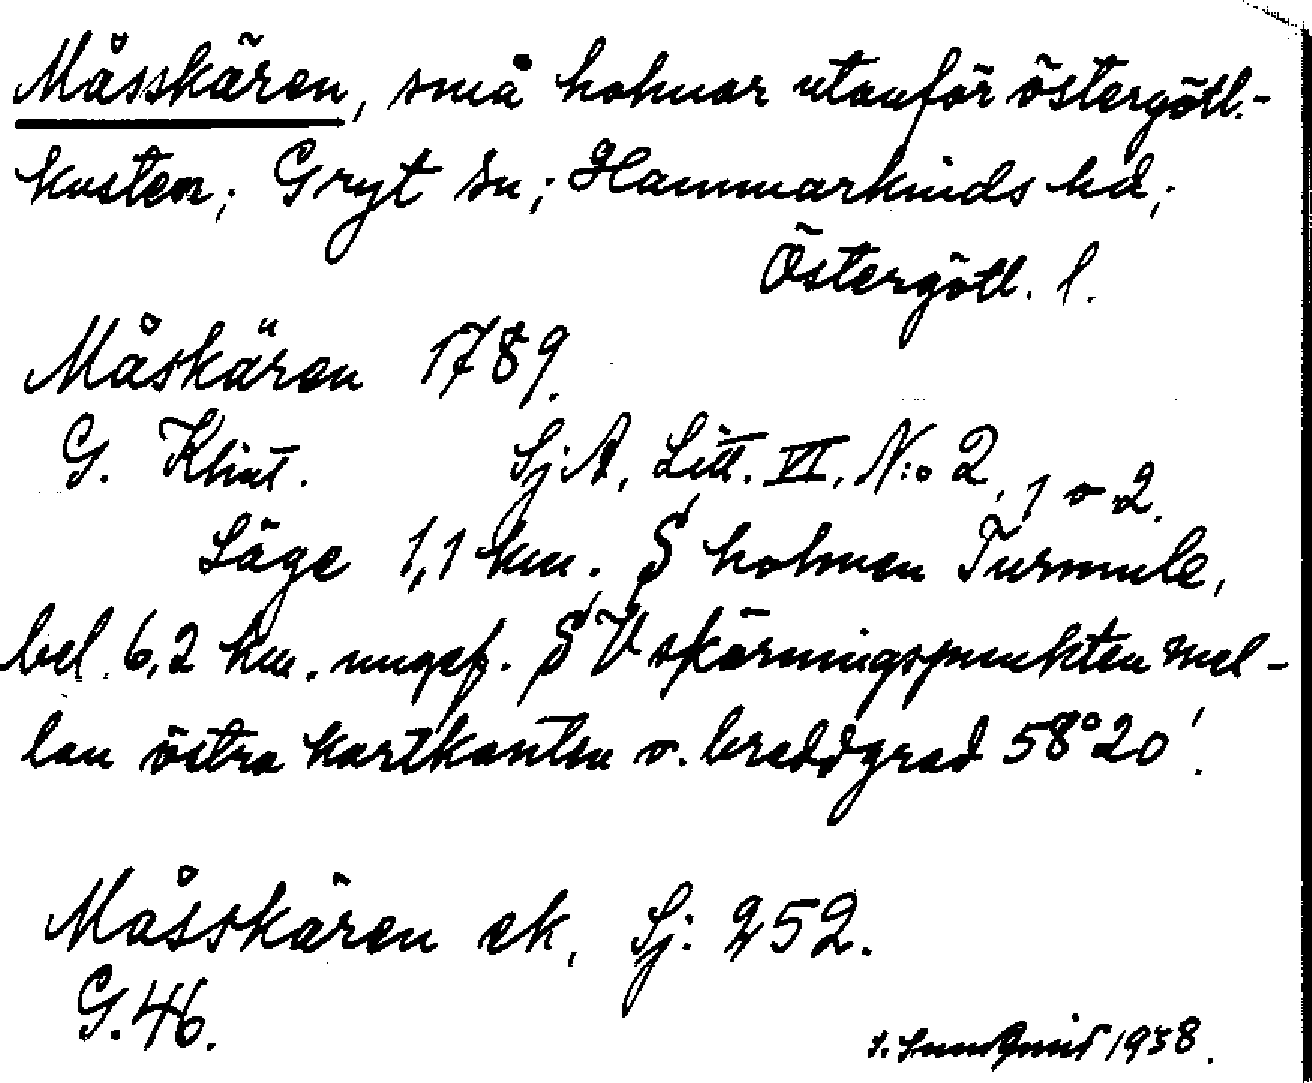 Måsskären, små holmar utanför östergötl.-
kusten; Gryt sn; Hammarkinds hd;
Östergötl. l.
Måskären 1789.
G. Klint. Sj.A, Litt. VI, N:o 2, 1 o 2.
Läge 1,1 km. S holmen Turmule,
bel. 6,2 km. ungef. S V skärningspunkten mel-
lan östra kartkanten o. breddgrad 58°20'.
Måsskären ek, Sj: 252.
G. 46.
1938.